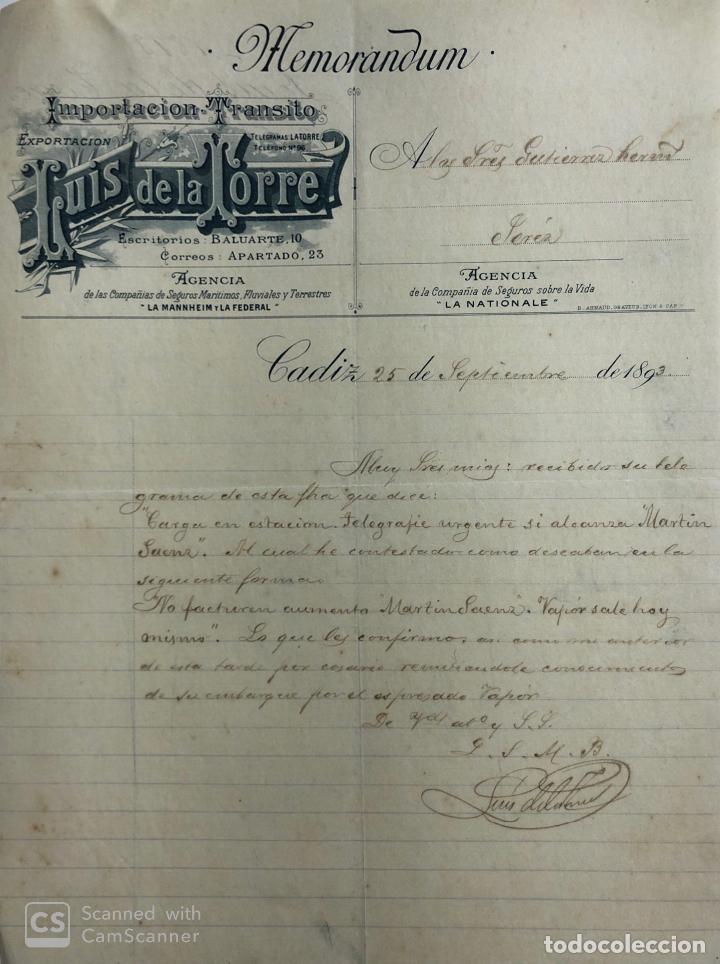 · Memorandum ·
Importacion-Transito
Exportacion
Telegramas LATORRE
Teléfono Nº 96
Luis de la Torre
Escritorios: BALUARTE, 10
Correos: APARTADO, 23
AGENCIA
de las Compañias de Seguros Maritimos, Fluviales y Terrestres
"LA MANNHEIM Y LA FEDERAL"
A los Sres Gutierrez herms
Jeréz
AGENCIA
de la Compañia de Seguros sobre la Vida
"LA NATIONALE"
B. ARNAUD, GRAVEUR, LYON &
Cadiz 25 de Septiembre de 1893
Muy Sres mios: recibido su tele
grama de esta fha que dice:
"Carga en estacion. Telegrafie urgente si alcanza "Martin
Saenz". Al cual he contestado como deseaban en la
siguiente forma
No facturen aumento "Martin Saenz". Vapór sale hoy
mismo". Lo que les confirmo, asi como mi anterior
de esta tarde por cosario remitiendole conocimiento
de su embarque por el espresado Vapór
De Vds at.o y S. S.
Q. S. M. B.
Luis de la Torre
CS Scanned with
CamScanner
todocoleccion